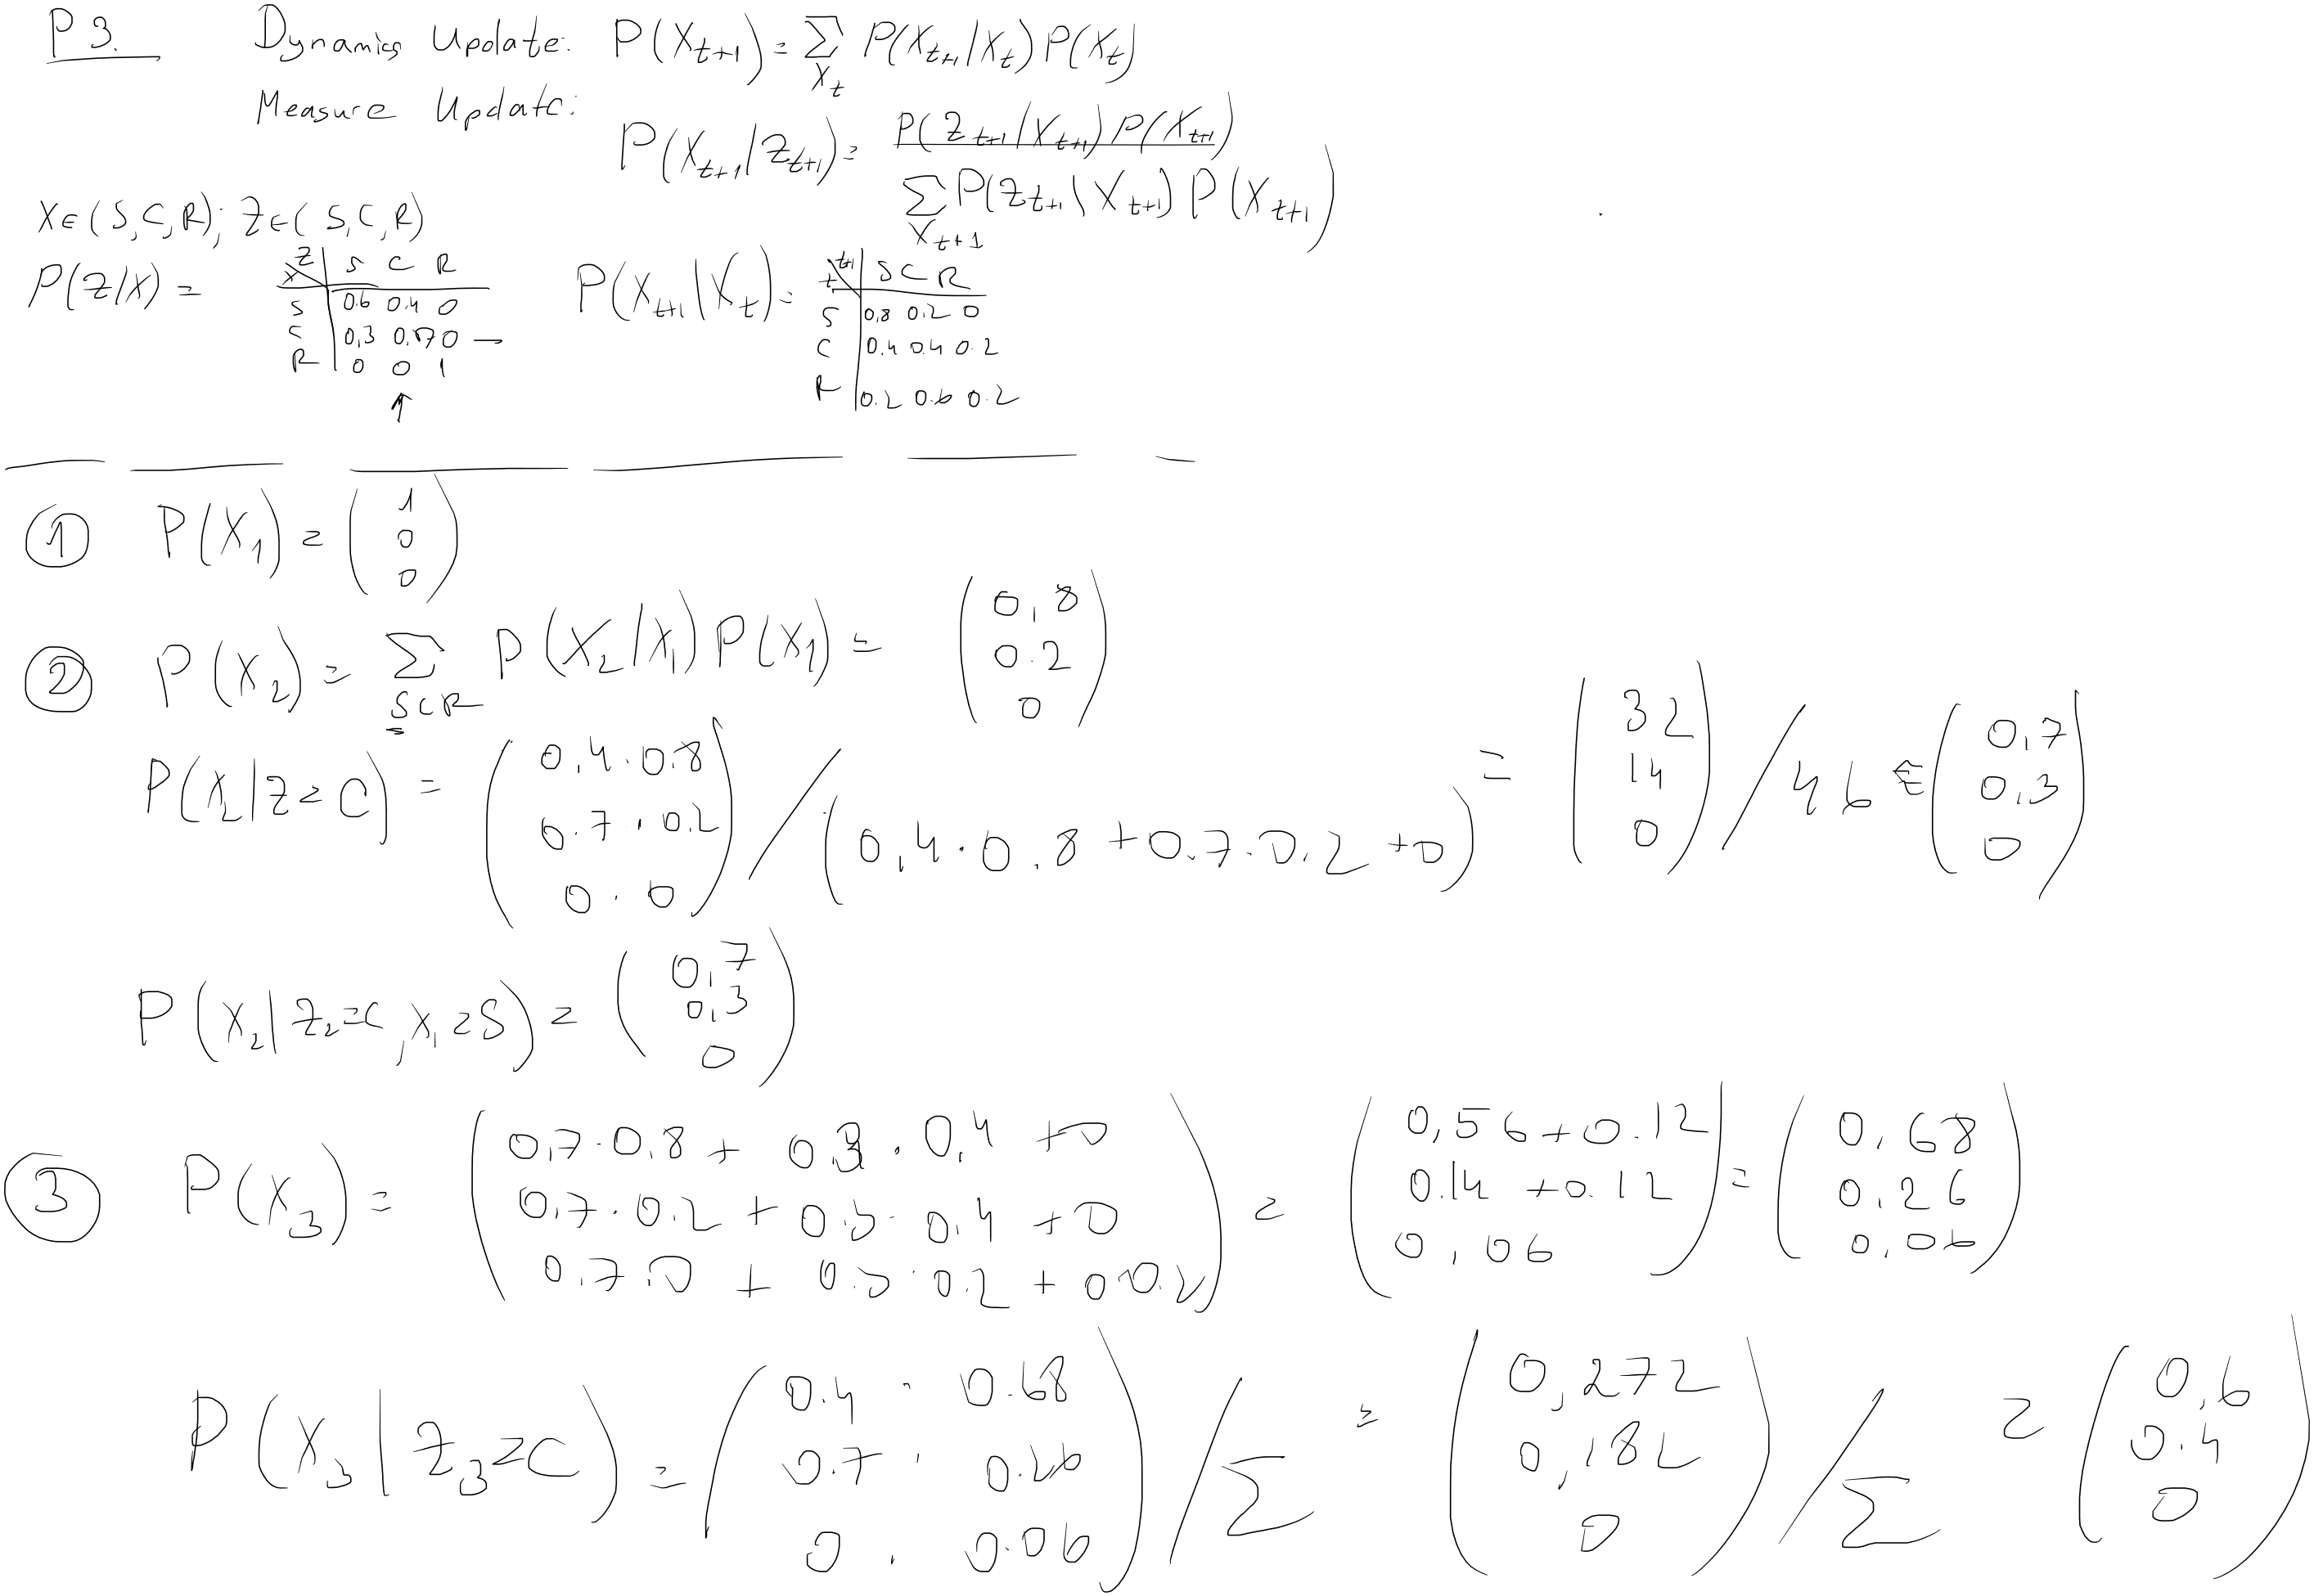 P3. Dynamics Update: P(X_{t+1}) = ∑_{X_t} P(X_{t+1}|X_t) P(X_t)
Measure Update:
P(X_{t+1}|Z_{t+1}) = P(Z_{t+1}|X_{t+1}) P(X_{t+1}) / ∑_{X_{t+1}} P(Z_{t+1}|X_{t+1}) P(X_{t+1})
X∈(S,C,R); Z∈(S,C,R)
P(Z|X) =
Z S C R
X
S 0.6 0,4 0
C 0,3 0.7 0 —
R 0 0 1
↑
P(X_{t+1}|X_t) =
t+1 S C R
t
S 0,8 0.2 0
C 0.4 0.4 0.2
R 0.2 0.6 0.2
① P(X_1) = (1
0
0)
② P(X_2) = ∑_{SCR} P(X_2|X_1) P(X_1) = (0,8
0.2
0)
P(X_2|Z=C) = (0,4·0.8
0.7·0.2
0·0) / (0,4·0.8+0.7·0.2+0) = (32
14
0) / 46 = (0,7
0,3
0)
P(X_2|Z_2=C, X_1=S) = (0,7
0,3
0)
③ P(X_3) = (0,7·0,8 + 0,3·0,4 +0
0,7·0.2 + 0.3·0,4 +0
0.7·0 + 0.3·0.2 + 0·0.2) = (0,56+0.12
0.14+0.12
0,06) = (0.68
0.26
0.06)
P(X_3|Z_3=C) = (0.4·0.68
0.7·0.26
0·0.06) / ∑ = (0,272
0,182
0) / ∑ = (0,6
0.4
0)